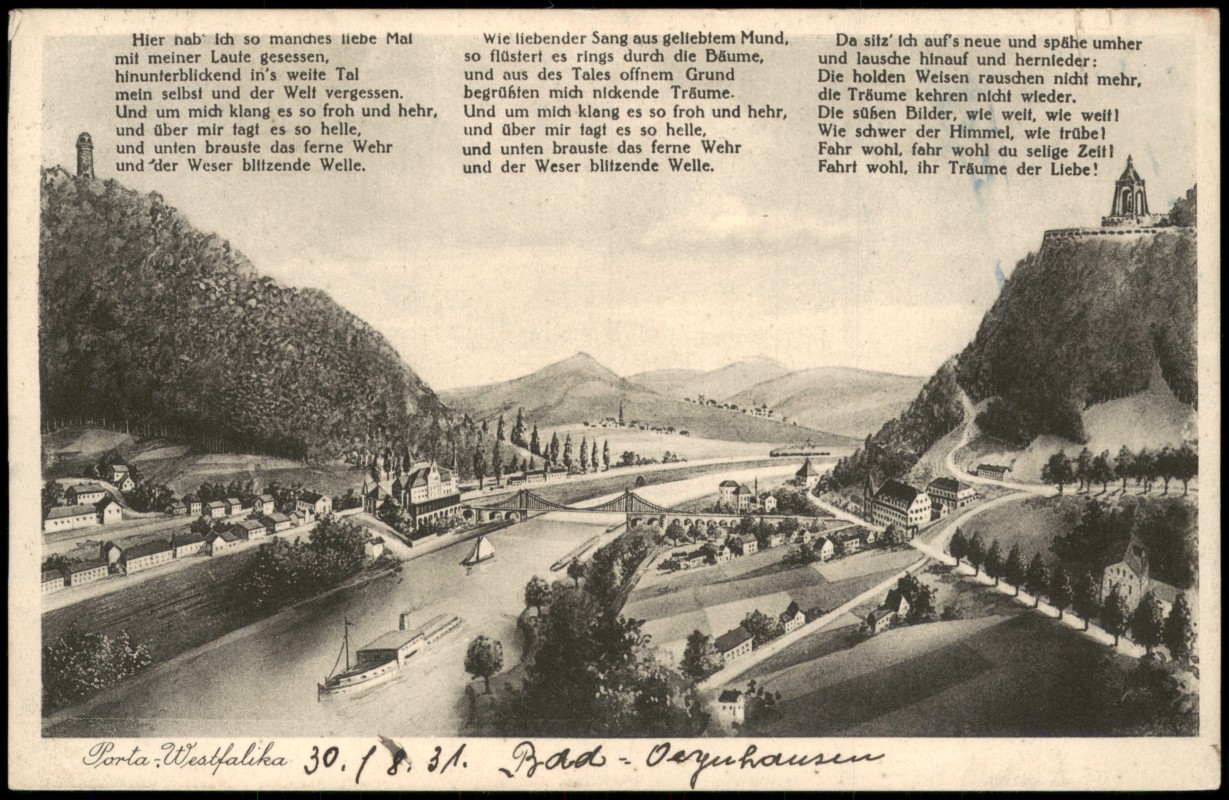 Hier hab' ich so manches liebe Mal
mit meiner Laute gesessen,
hinunterblickend in's weite Tal
mein selbst und der Welt vergessen.
Und um mich klang es so froh und hehr,
und über mir tagt es so helle,
und unten brauste das ferne Wehr
und der Weser blitzende Welle.
Wie liebender Sang aus geliebtem Mund,
so flüstert es rings durch die Bäume,
und aus des Tales offnem Grund
begrüßten mich nickende Träume.
Und um mich klang es so froh und hehr,
und über mir tagt es so helle,
und unten brauste das ferne Wehr
und der Weser blitzende Welle.
Da sitz' ich auf's neue und spähe umher
und lausche hinauf und hernieder:
Die holden Weisen rauschen nicht mehr,
die Träume kehren nicht wieder.
Die süßen Bilder, wie weit, wie weit!
Wie schwer der Himmel, wie trübe!
Fahr wohl, fahr wohl du selige Zeit!
Fahrt wohl, ihr Träume der Liebe!
Porta-Westfalika 30./8.31. Bad-Oeynhausen